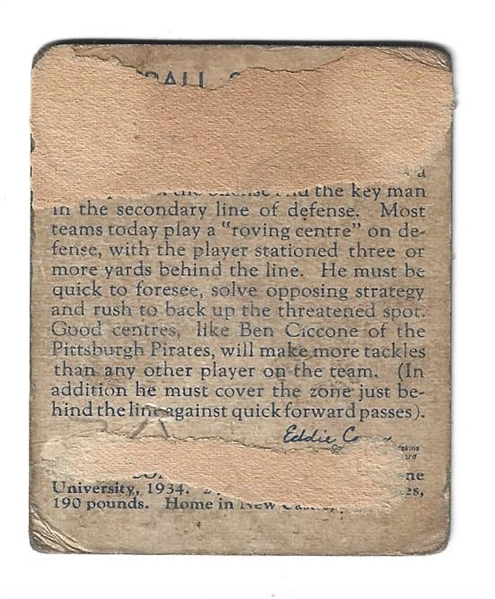 a
the key man
in the secondary line of defense. Most
teams today play a "roving centre" on de-
fense, with the player stationed three or
more yards behind the line. He must be
quick to foresee, solve opposing strategy
and rush to back up the threatened spot.
Good centres, like Ben Ciccone of the
Pittsburgh Pirates, will make more tackles
than any other player on the team. (In
addition he must cover the zone just be-
hind the line against quick forward passes).
Eddie
University, 1934.
190 pounds. Home in New